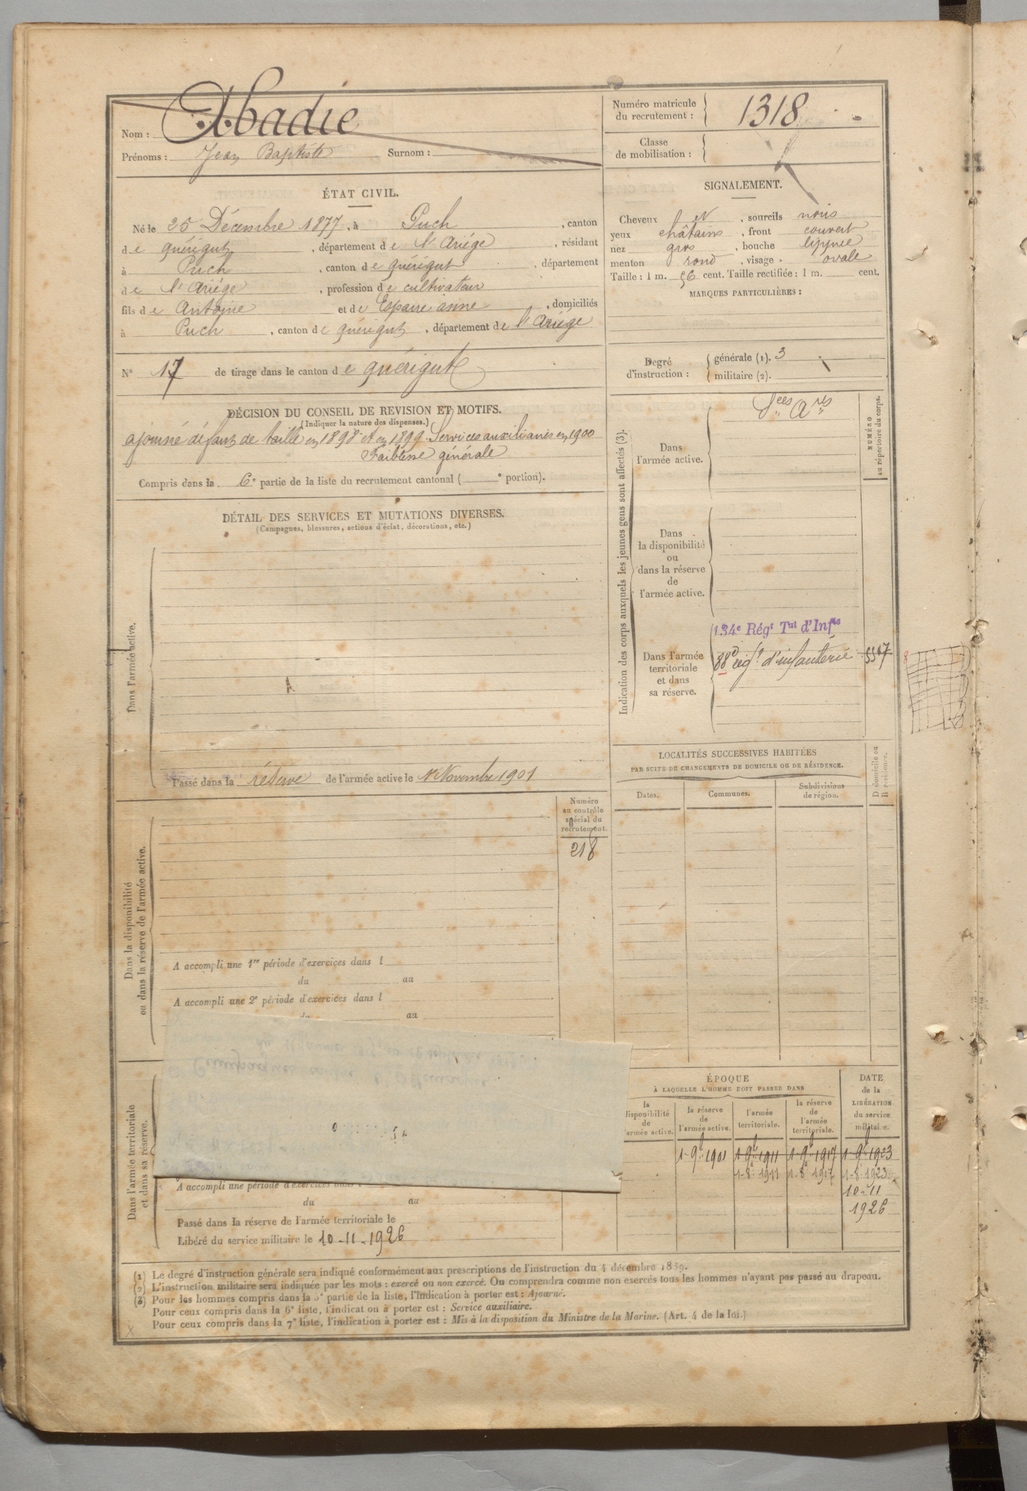 Nom : Abadie
Prénoms : Jean Baptiste Surnom :
Numéro matricule du recrutement : 1318
Classe de mobilisation :
ÉTAT CIVIL.
Né le 25 Décembre 1877, à Puch, canton
de quérigut, département de l'Ariége, résidant
à Puch, canton de quérigut, département
de l'Ariége, profession de cultivateur
fils de Antoine et de Espaire anne, domiciliés
à Puch, canton de quérigut, département de l'Ariége
N° 17 de tirage dans le canton de quérigut
SIGNALEMENT.
Cheveux et, sourcils noirs
yeux châtains, front couvert
nez gros, bouche
menton rond, visage ovale
Taille : 1 m. 56 cent. Taille rectifiée : 1 m. cent.
MARQUES PARTICULIÈRES :
Degré d'instruction : générale (1). 3
militaire (2).
DÉCISION DU CONSEIL DE REVISION ET MOTIFS.
(Indiquer la nature des dispenses.)
ajourné défaut de taille en 1898 et en 1899. Services auxiliaires en 1900
Faiblesse générale
Compris dans la 6e partie de la liste du recrutement cantonal ( e portion).
DÉTAIL DES SERVICES ET MUTATIONS DIVERSES.
(Campagnes, blessures, actions d'éclat, décorations, etc.)
Dans l'armée active.
Passé dans la réserve de l'armée active le 1er Novembre 1901
Indication des corps auxquels les jeunes gens sont affectés (3).
NUMÉRO au répertoire du corps.
Dans
l'armée active.
Sces Ares
Dans
la disponibilité
ou
dans la réserve
de
l'armée active.
134e Régt Tal d'Infie
Dans l'armée
territoriale
et dans
sa réserve.
88e régt d'infanterie 5567
LOCALITÉS SUCCESSIVES HABITÉES
PAR SUITE DE CHANGEMENTS DE DOMICILE OU DE RÉSIDENCE.
Dates. Communes. Subdivisions de région. D domicile ou R résidence.
Dans la disponibilité
ou dans la réserve de l'armée active.
Numéro
au contrôle
spécial du
recrutement.
218
A accompli une 1re période d'exercices dans l
du au
A accompli une 2e période d'exercices dans l
du au
Dans l'armée territoriale
et dans sa réserve.
A accompli une période d'exercices dans l
du au
Passé dans la réserve de l'armée territoriale le
Libéré du service militaire le 10-11-1926
ÉPOQUE
À LAQUELLE L'HOMME DOIT PASSER DANS
la disponibilité de l'armée active.
la réserve de l'armée active.
l'armée territoriale.
la réserve de l'armée territoriale.
DATE de la LIBÉRATION du service militaire.
1-9bre 1901 1-9bre 1911 1-9bre 1917 1-9bre 1923
1-8e 1911 1-8e 1917 1-8 1923
10-11
1926
(1) Le degré d'instruction générale sera indiqué conformément aux prescriptions de l'instruction du 4 décembre 1889.
(2) L'instruction militaire sera indiquée par les mots : exercé ou non exercé. On comprendra comme non exercés tous les hommes n'ayant pas passé au drapeau.
(3) Pour les hommes compris dans la 5e partie de la liste, l'indication à porter est : Ajourné.
Pour ceux compris dans la 6e liste, l'indication à porter est : Service auxiliaire.
Pour ceux compris dans la 7e liste, l'indication à porter est : Mis à la disposition du Ministre de la Marine. (Art. 4 de la loi.)